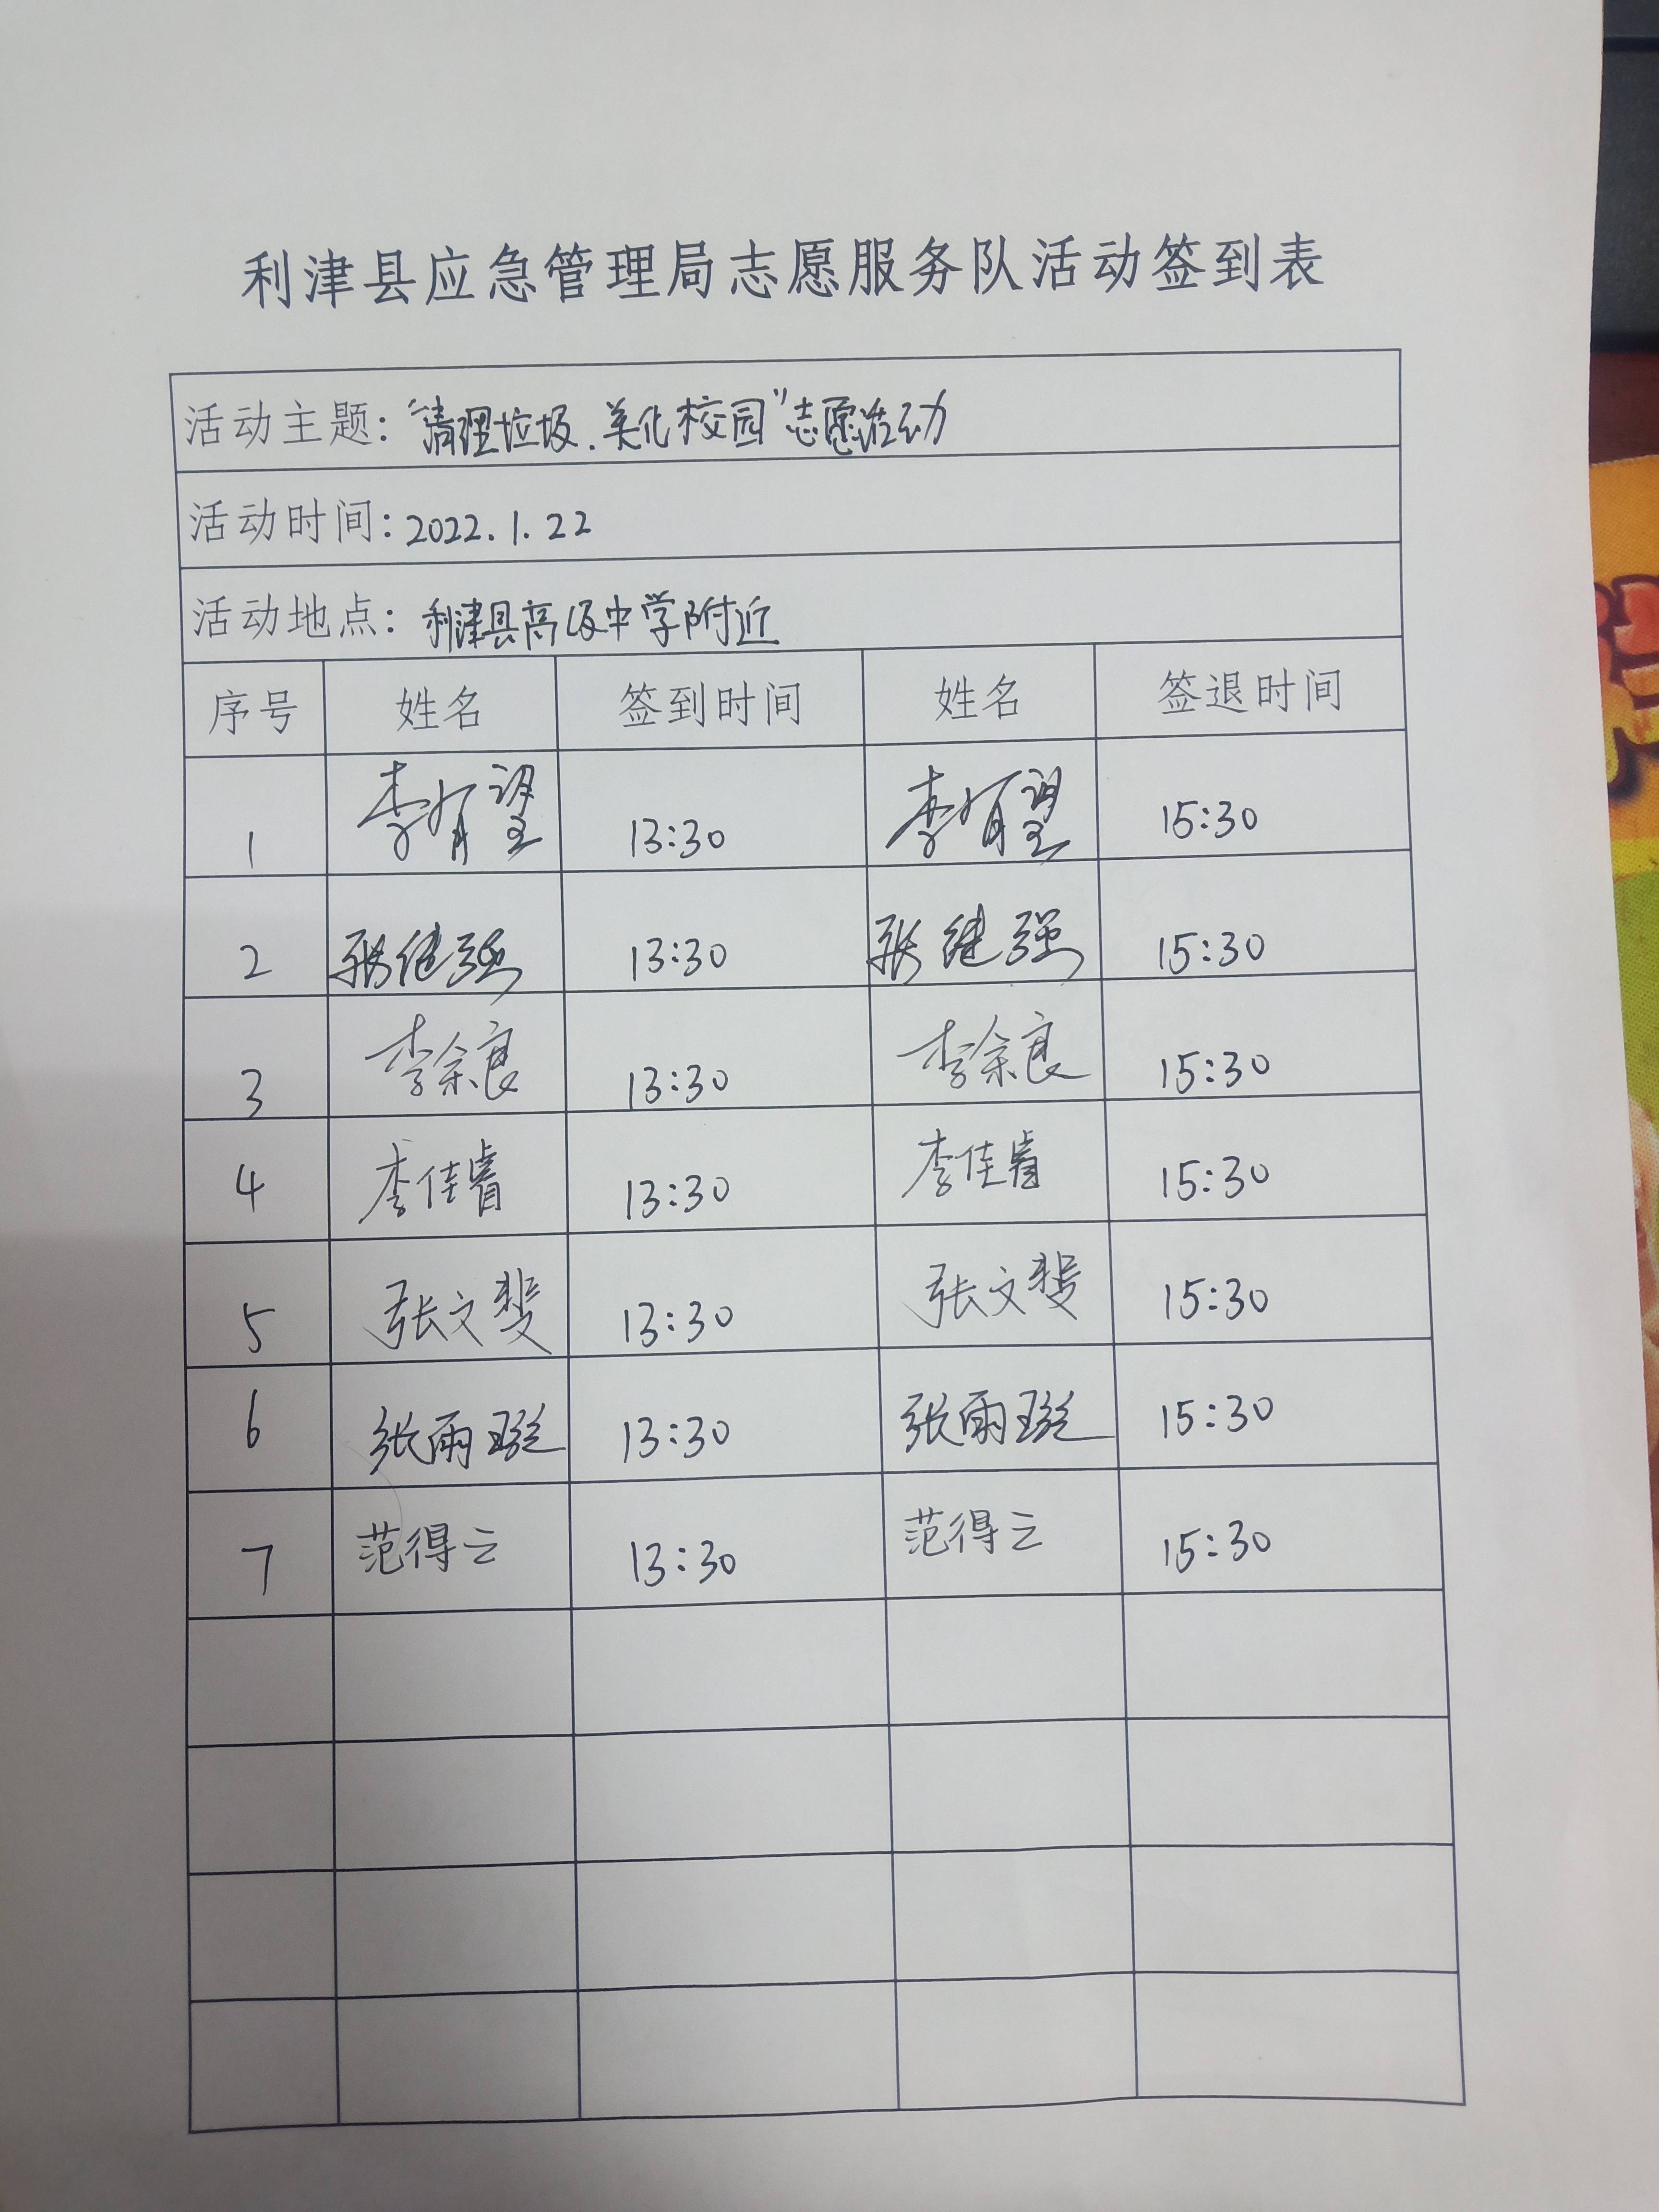 利津县应急管理局志愿服务队活动签到表
活动主题：“清理垃圾.美化校园”志愿活动
活动时间：2022.1.22
活动地点：利津县高级中学附近
序号 姓名 签到时间 姓名 签退时间
1 李有望 13:30 李有望 15:30
2 张继强 13:30 张继强 15:30
3 李余良 13:30 李余良 15:30
4 李佳睿 13:30 李佳睿 15:30
5 张文斐 13:30 张文斐 15:30
6 张雨璇 13:30 张雨璇 15:30
7 范得云 13:30 范得云 15:30